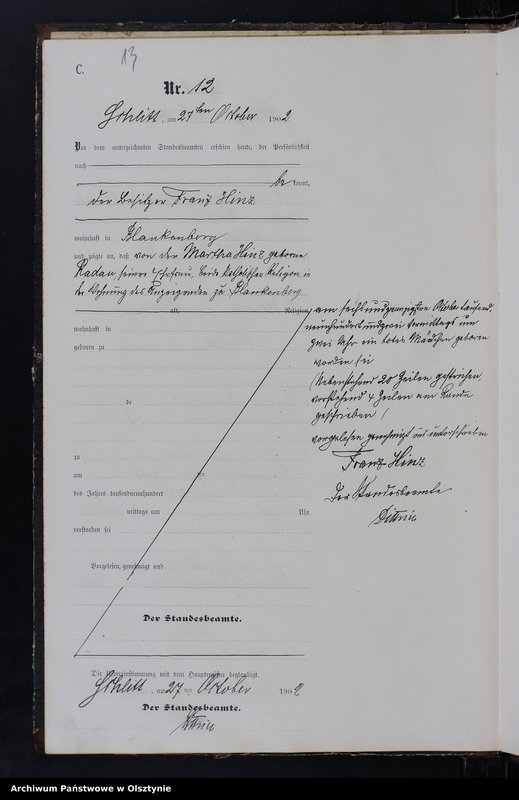 13
C.
Nr. 12
Schlitt, am 27ten October 1902
Vor dem unterzeichneten Standesbeamten erschien heute, der Persönlichkeit
nach
kannt,
der Besitzer Franz Hinz
wohnhaft in Blankenberg
und zeigte an, daß von der Martha Hinz geborne
Radau, seiner Ehefrau, beide katholischer Religion, in
der Wohnung des Anzeigenden zu Blankenberg
alt, Religion,
wohnhaft in
geboren zu
de
zu
am ten
des Jahres tausendneunhundert
mittags um Uhr
verstorben sei
Vorgelesen, genehmigt und
Der Standesbeamte.
am sechsundzwanzigsten October tausend
neunhundert und zwei Vormittags um
zwei Uhr ein todtes Mädchen geboren
worden sei
gestrichen,
vorstehend 4 Zeilen am Rande
geschrieben /
vorgelesen genehmigt und unterschrieben
Franz Hinz
Der Standesbeamte
Die Übereinstimmung mit dem Hauptregister beglaubigt.
Schlitt, am 27 ten October 1902
Der Standesbeamte.
Archiwum Państwowe w Olsztynie